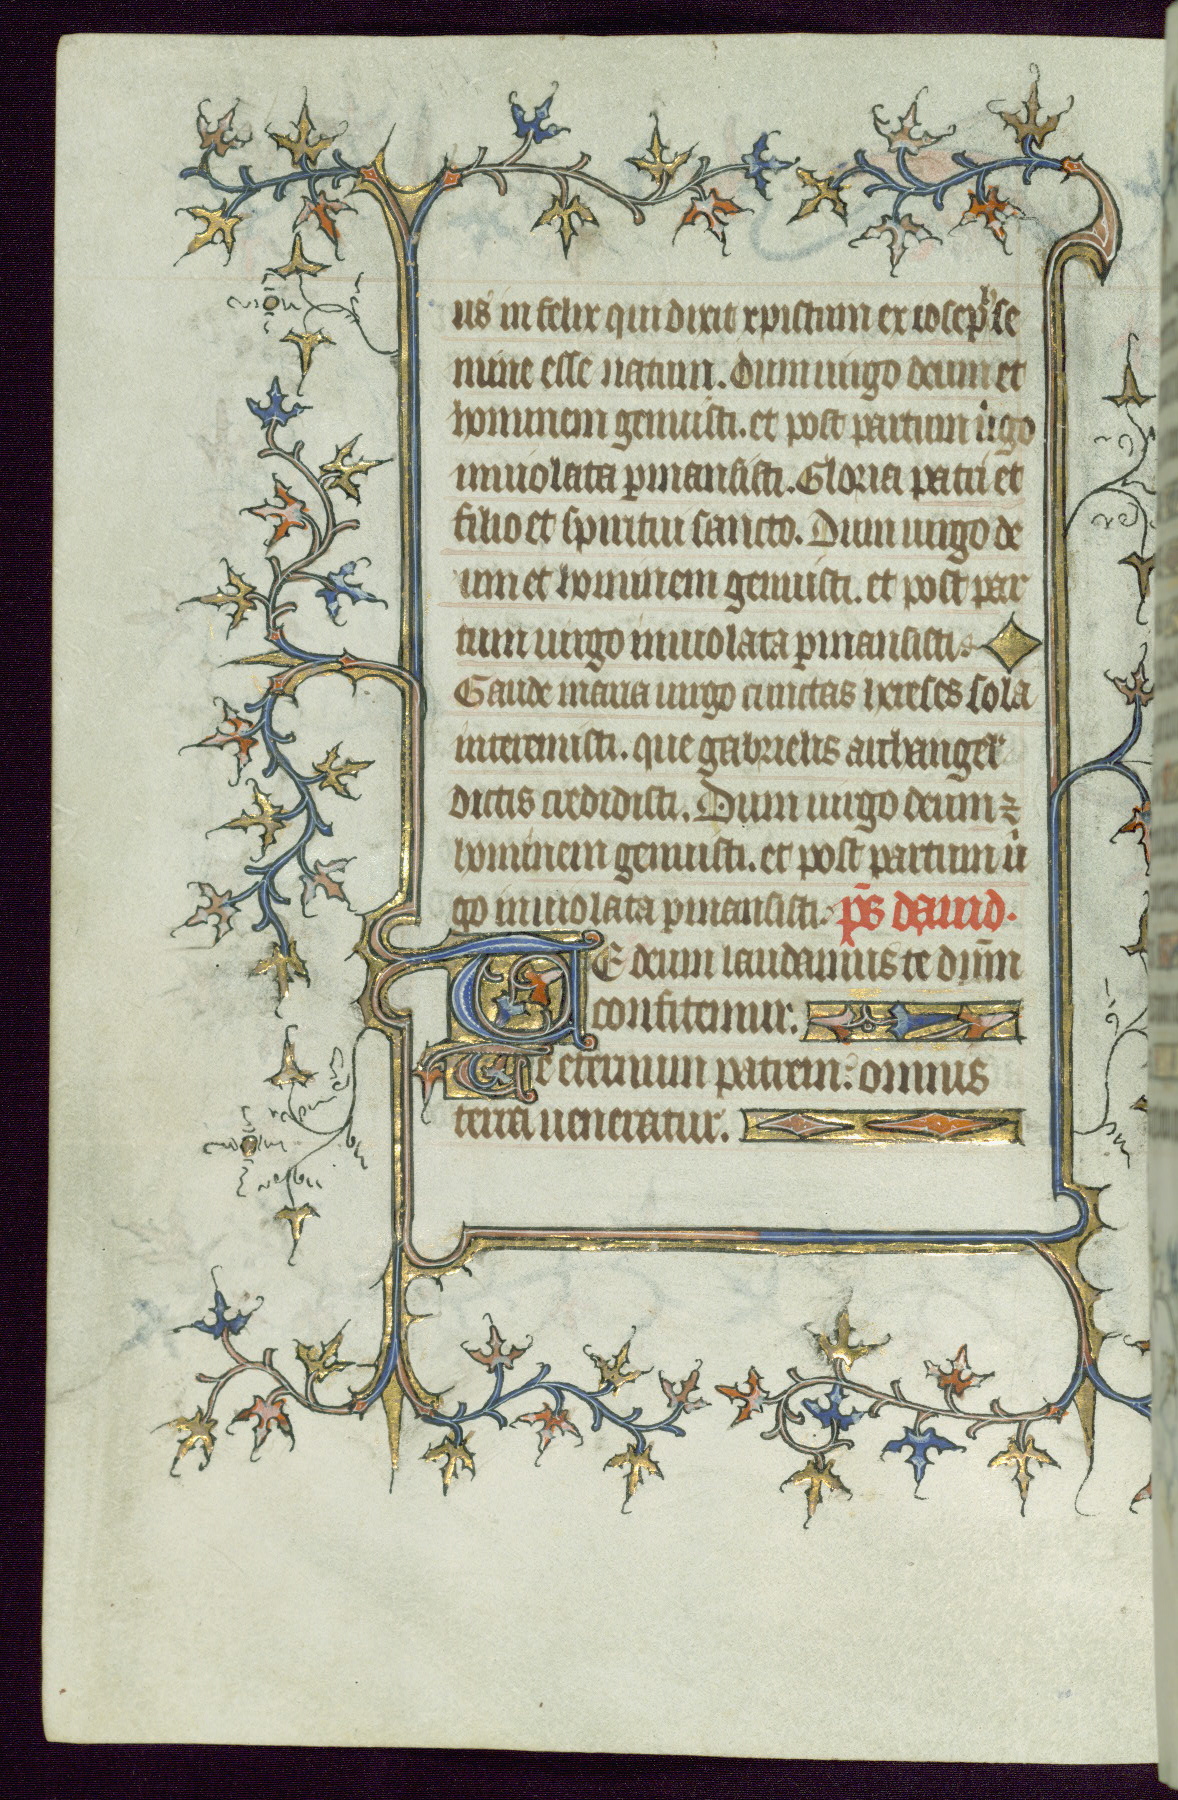 us infelix qui dixit xpistum ex ioseph se
mine esse natum. Dum uirgo deum et
hominem genuisti. et post partum uͥgo
inuiolata ꝑmansisti. Gloria patri et
filio et spiritui sancto. Dum uirgo de
um et hominem genuisti. et post par
tum uirgo inuiolata ꝑmansisti.
Gaude maria uirgo cunctas hereses sola
interemisti. que gabrielis archangeli
dictis credidisti. Dum uirgo deum ⁊
hominem genuisti. et post partum uͥ
go inuiolata ꝑmansisti. p̄s dauid.
TE deum laudamus te dn̄m
confitemur.
Te eternum patrem: omnis
terra ueneratur.